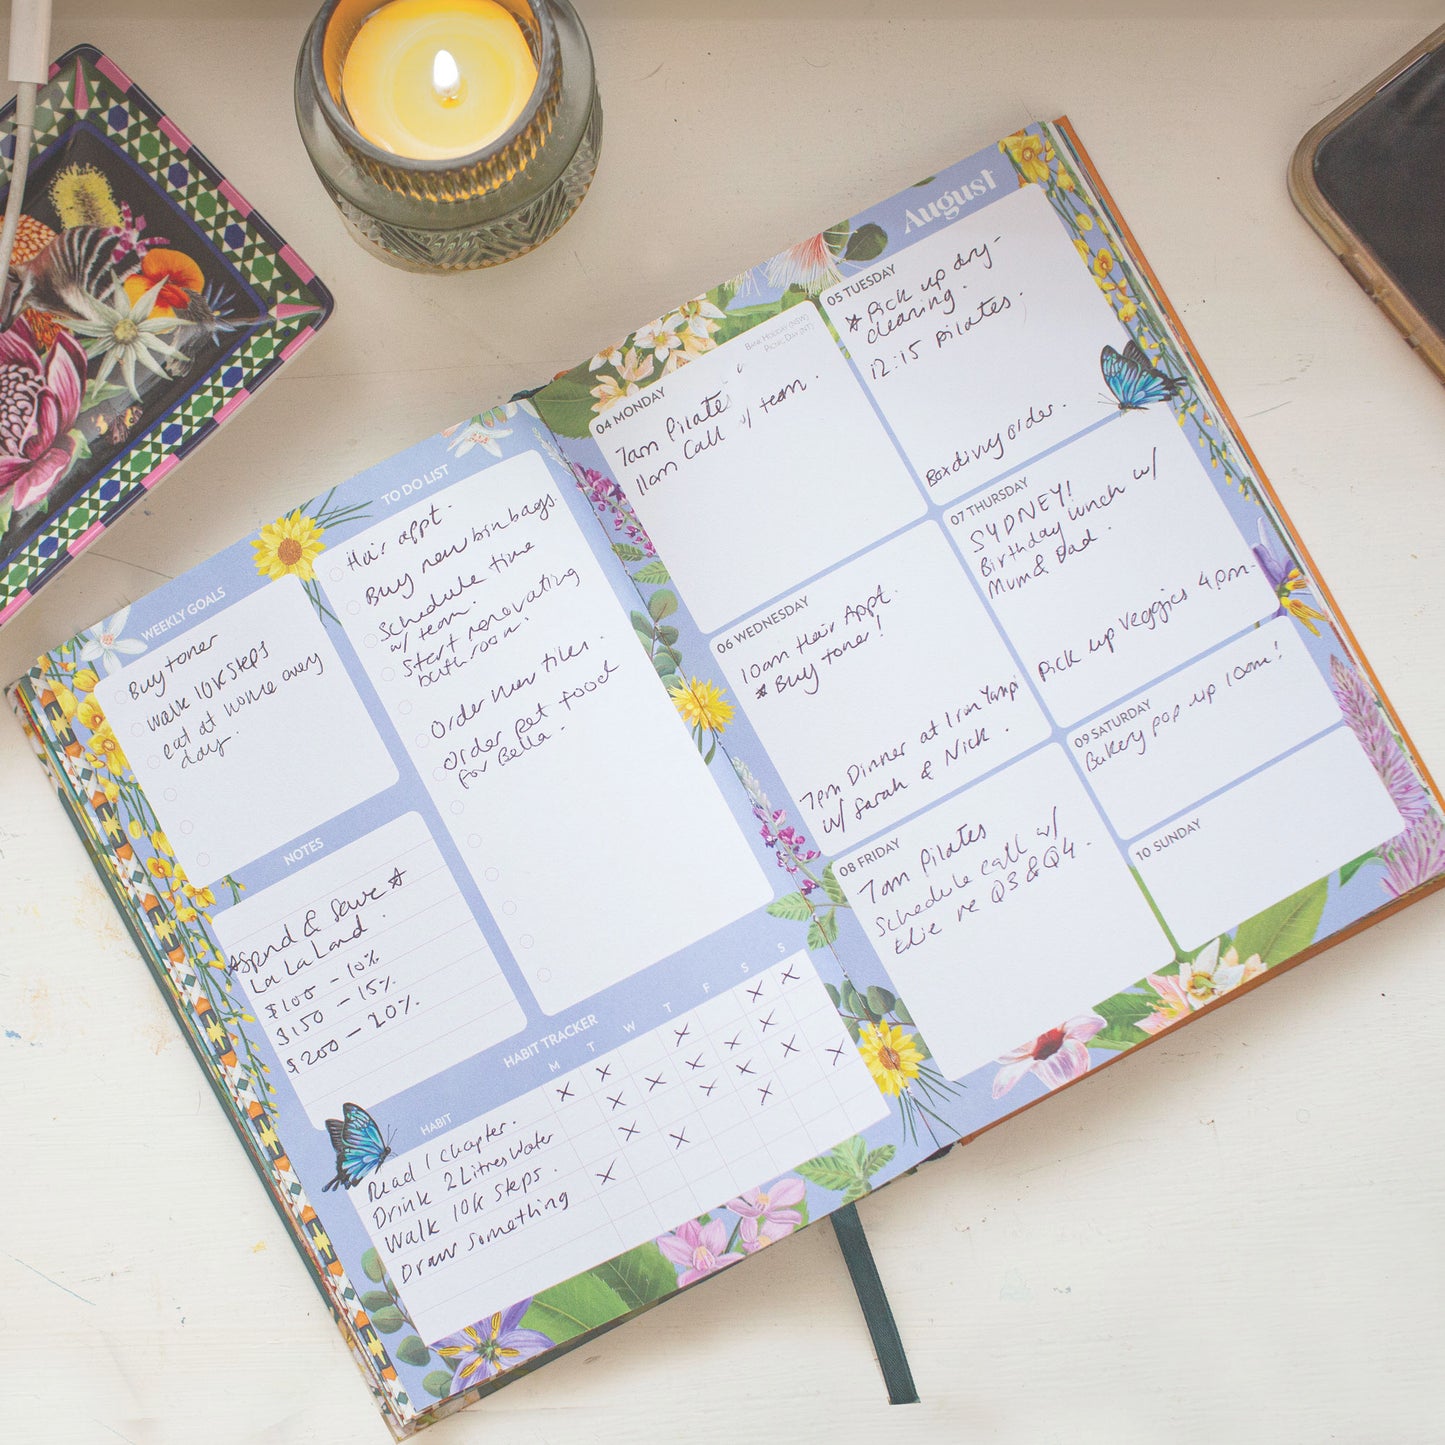 WEEKLY GOALS
Buy toner
Walk 10K steps
eat at home every
day.
TO DO LIST
Hair appt.
Buy new bin bags.
Schedule time
w/ team.
Start renovating
bathroom.
Order new tiles.
Order pet food
for Bella.
NOTES
*Spend & Save*
La La Land.
$100 - 10%
$150 - 15%
$200 - 20%.
HABIT TRACKER
HABIT
M T W T F S S
Read 1 chapter.
Drink 2 Litres Water
Walk 10K Steps.
Draw something
August
04 MONDAY
Bank Holiday (NSW)
Picnic Day (NT)
7am Pilates
11am Call w/ team.
05 TUESDAY
* Pick up dry-
cleaning.
12:15 Pilates.
Box divvy order.
06 WEDNESDAY
10am Hair Appt.
* Buy toner!
7pm Dinner at
w/ Sarah & Nick.
07 THURSDAY
SYDNEY!
Birthday lunch w/
Mum & Dad.
Pick up Veggies 4pm.
08 FRIDAY
7am Pilates
Schedule call w/
Edie re Q3 & Q4.
09 SATURDAY
Bakery pop up 10am!
10 SUNDAY